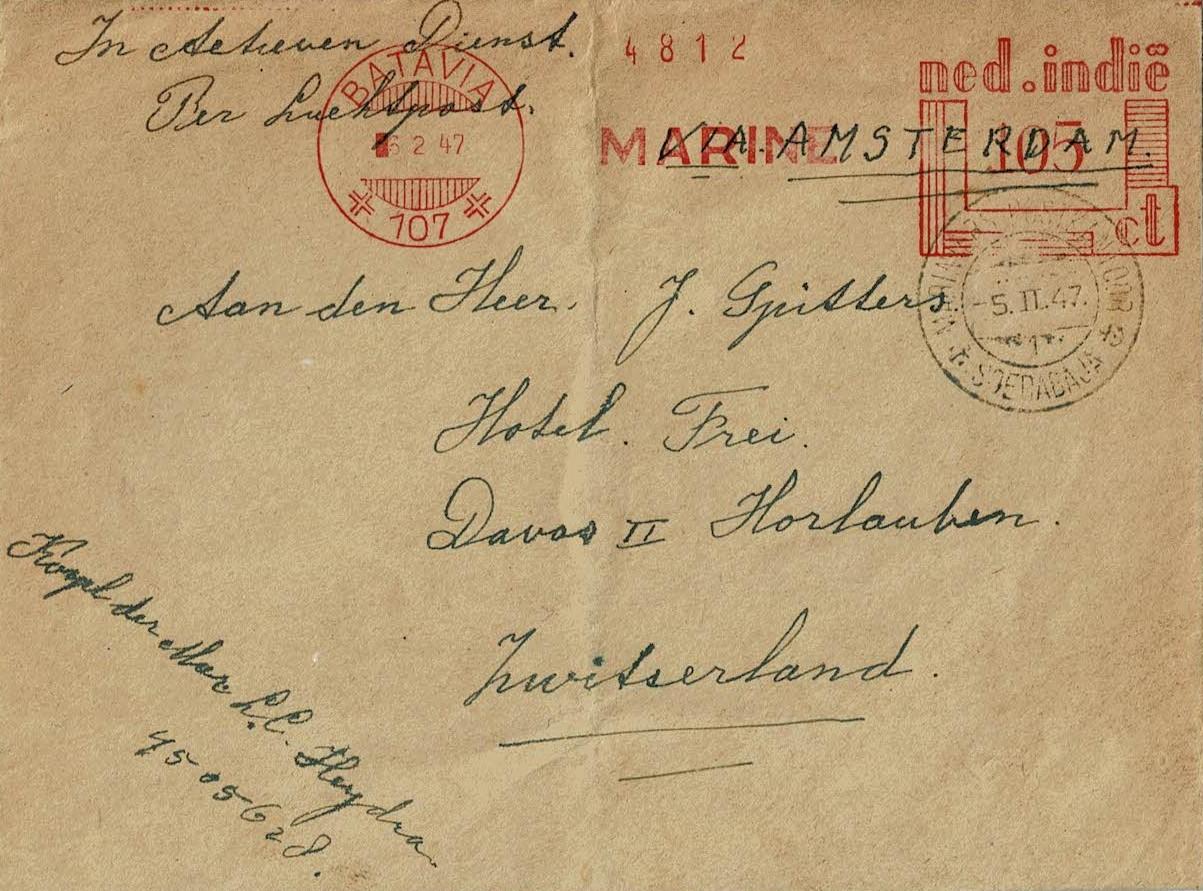 In Actieven Dienst.
Per Luchtpost.
BATAVIA
6 2 47
107
4812
MARINE
VIA. AMSTERDAM.
ned.indië
105
ct
-5.II.47.
1
SOERABAJA
Aan den Heer. J. Gpitters
Hotel. Frei.
Davos II Horlauben.
Zwitserland.
Korpl der Marns L.C. Heydra.
4505628.